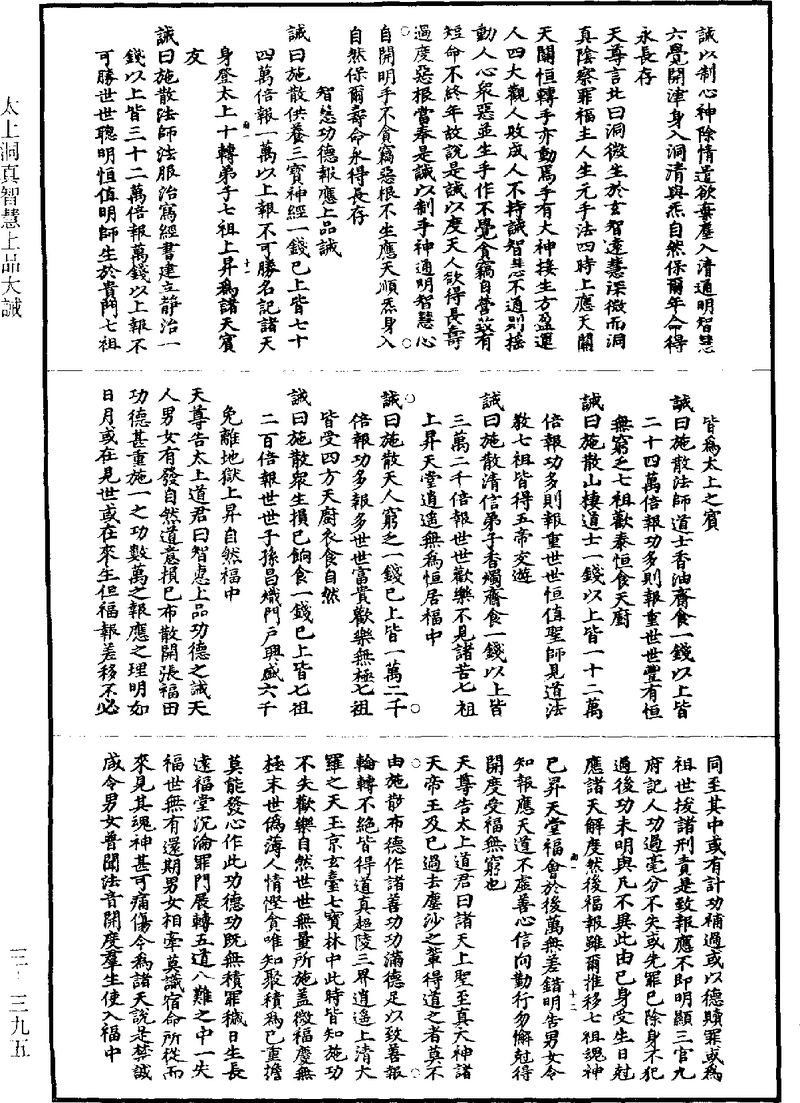 太上洞真智慧上品大誡
三·三九五
誡以制心神除情遣欲棄塵入清通明智慧
六覺開津身入洞清與炁自然保爾年命得
永長存
天尊言此曰洞微生於玄智達慧深微而洞
真陰察罪福主人生元手法四時上應天關
天關恒轉手亦動焉手有大神接生方盈運
人四大觀人敗成人不持誡智慧不通則搖
動人心衆惡並生手作不覺貪竊自營致有
短命不終年故說是誡以度天人欲得長壽
過度惡根當奉是誡以制手神通明智慧心
自開明手不貪竊惡根不生應天順炁身入
自然保爾壽命永得長存
智慧功德報應上品誡
誡曰施散供養三寶神經一錢已上皆七十
四萬倍報一萬以上報不可勝名記諸天
身登太上十轉弟子七祖上昇爲諸天賓
友
誡曰施散法師法服治寫經書建立靜治一
錢以上皆三十二萬倍報萬錢以上報不
可勝世世聰明恒值明師生於貴門七祖
皆爲太上之賓
誡曰施散法師道士香油齋食一錢以上皆
二十四萬倍報功多則報重世世豐有恒
無窮乏七祖歡泰恒食天廚
誡曰施散山棲道士一錢以上皆一十二萬
倍報功多則報重世世恒值聖師見道法
教七祖皆得五帝交遊
誡曰施散清信弟子香燭齋食一錢以上皆
三萬二千倍報世世歡樂不見諸苦七祖
上昇天堂逍遙無爲恒居福中
誡曰施散天人窮乏一錢已上皆一萬二千
倍報功多報多世世富貴歡樂無極七祖
皆受四方天廚衣食自然
誡曰施散衆生損已餉食一錢已上皆七祖
二百倍報世世子孫昌熾門戶興盛六千
免離地獄上昇自然福中
天尊告太上道君曰智慧上品功德之誡天
人男女有發自然道意損已布散開張福田
功德甚重施一之功數萬之報應之理明如
日月或在見世或在來生但福報差移不必
同至其中或有計功補過或以德贖罪或爲
祖世拔諸刑責是致報應不即明顯三官九
府記人功過毫分不失或先罪已除身不犯
過後功未明與凡不異此由已身受生日尅
應諸天解度然後福報雖爾推移七祖魂神
已昇天堂福會於後萬無差錯明告男女令
知報應天道不虛善心信向勤行勿懈尅得
開度受福無窮也
天尊告太上道君曰諸天上聖至真大神諸
天帝王及已過去塵沙之輩得道之者莫不
由施散布德作諸善功功滿德足以致善報
輪轉不絕皆得道真超陵三界逍遙上清大
羅之天玉京玄臺七寶林中此時皆知施功
不失歡樂自然世世無量所施蓋微福慶無
極末世僞薄人情慳貪唯知聚積爲已重擔
莫能發心作此功德功既無積罪穢日生長
遠福堂沉淪罪門展轉五道八難之中一失
福世無有還期男女相牽莫識宿命所從而
來見其魂神甚可痛傷今爲諸天說是禁誡
咸令男女普聞法音開度羣生使入福中